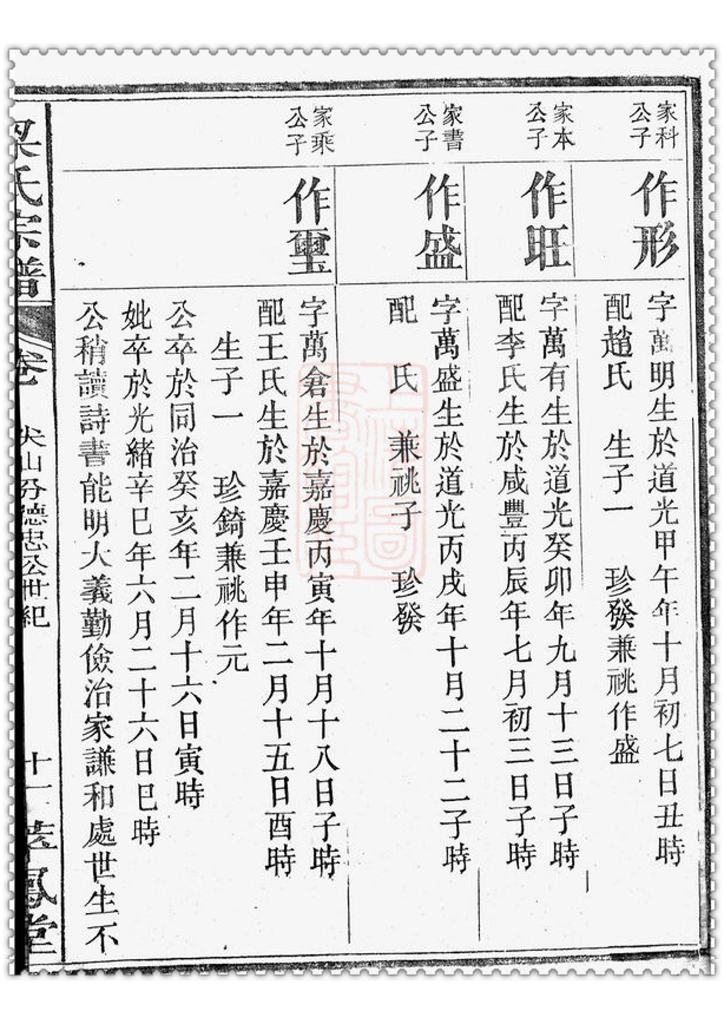 家科
公子
作形
字萬明生於道光甲午年十月初七日丑時
配趙氏 生子一 珍發兼祧作盛
家本
公子
作旺
字萬有生於道光癸卯年九月十三日子時
配李氏生於咸豐丙辰年七月初三日子時
家書
公子
作盛
字萬盛生於道光丙戌年十月二十二子時
配 氏 兼祧子 珍發
家乘
公子
作璽
字萬倉生於嘉慶丙寅年十月十八日子時
配王氏生於嘉慶壬申年二月十五日酉時
生子一 珍錡兼祧作元
公卒於同治癸亥年二月十六日寅時
妣卒於光緒辛巳年六月二十六日巳時
公稍讀詩書能明大義勤儉治家謙和處世生不
梁氏宗譜
卷
尖山分德忠公世紀
十一
鳳堂